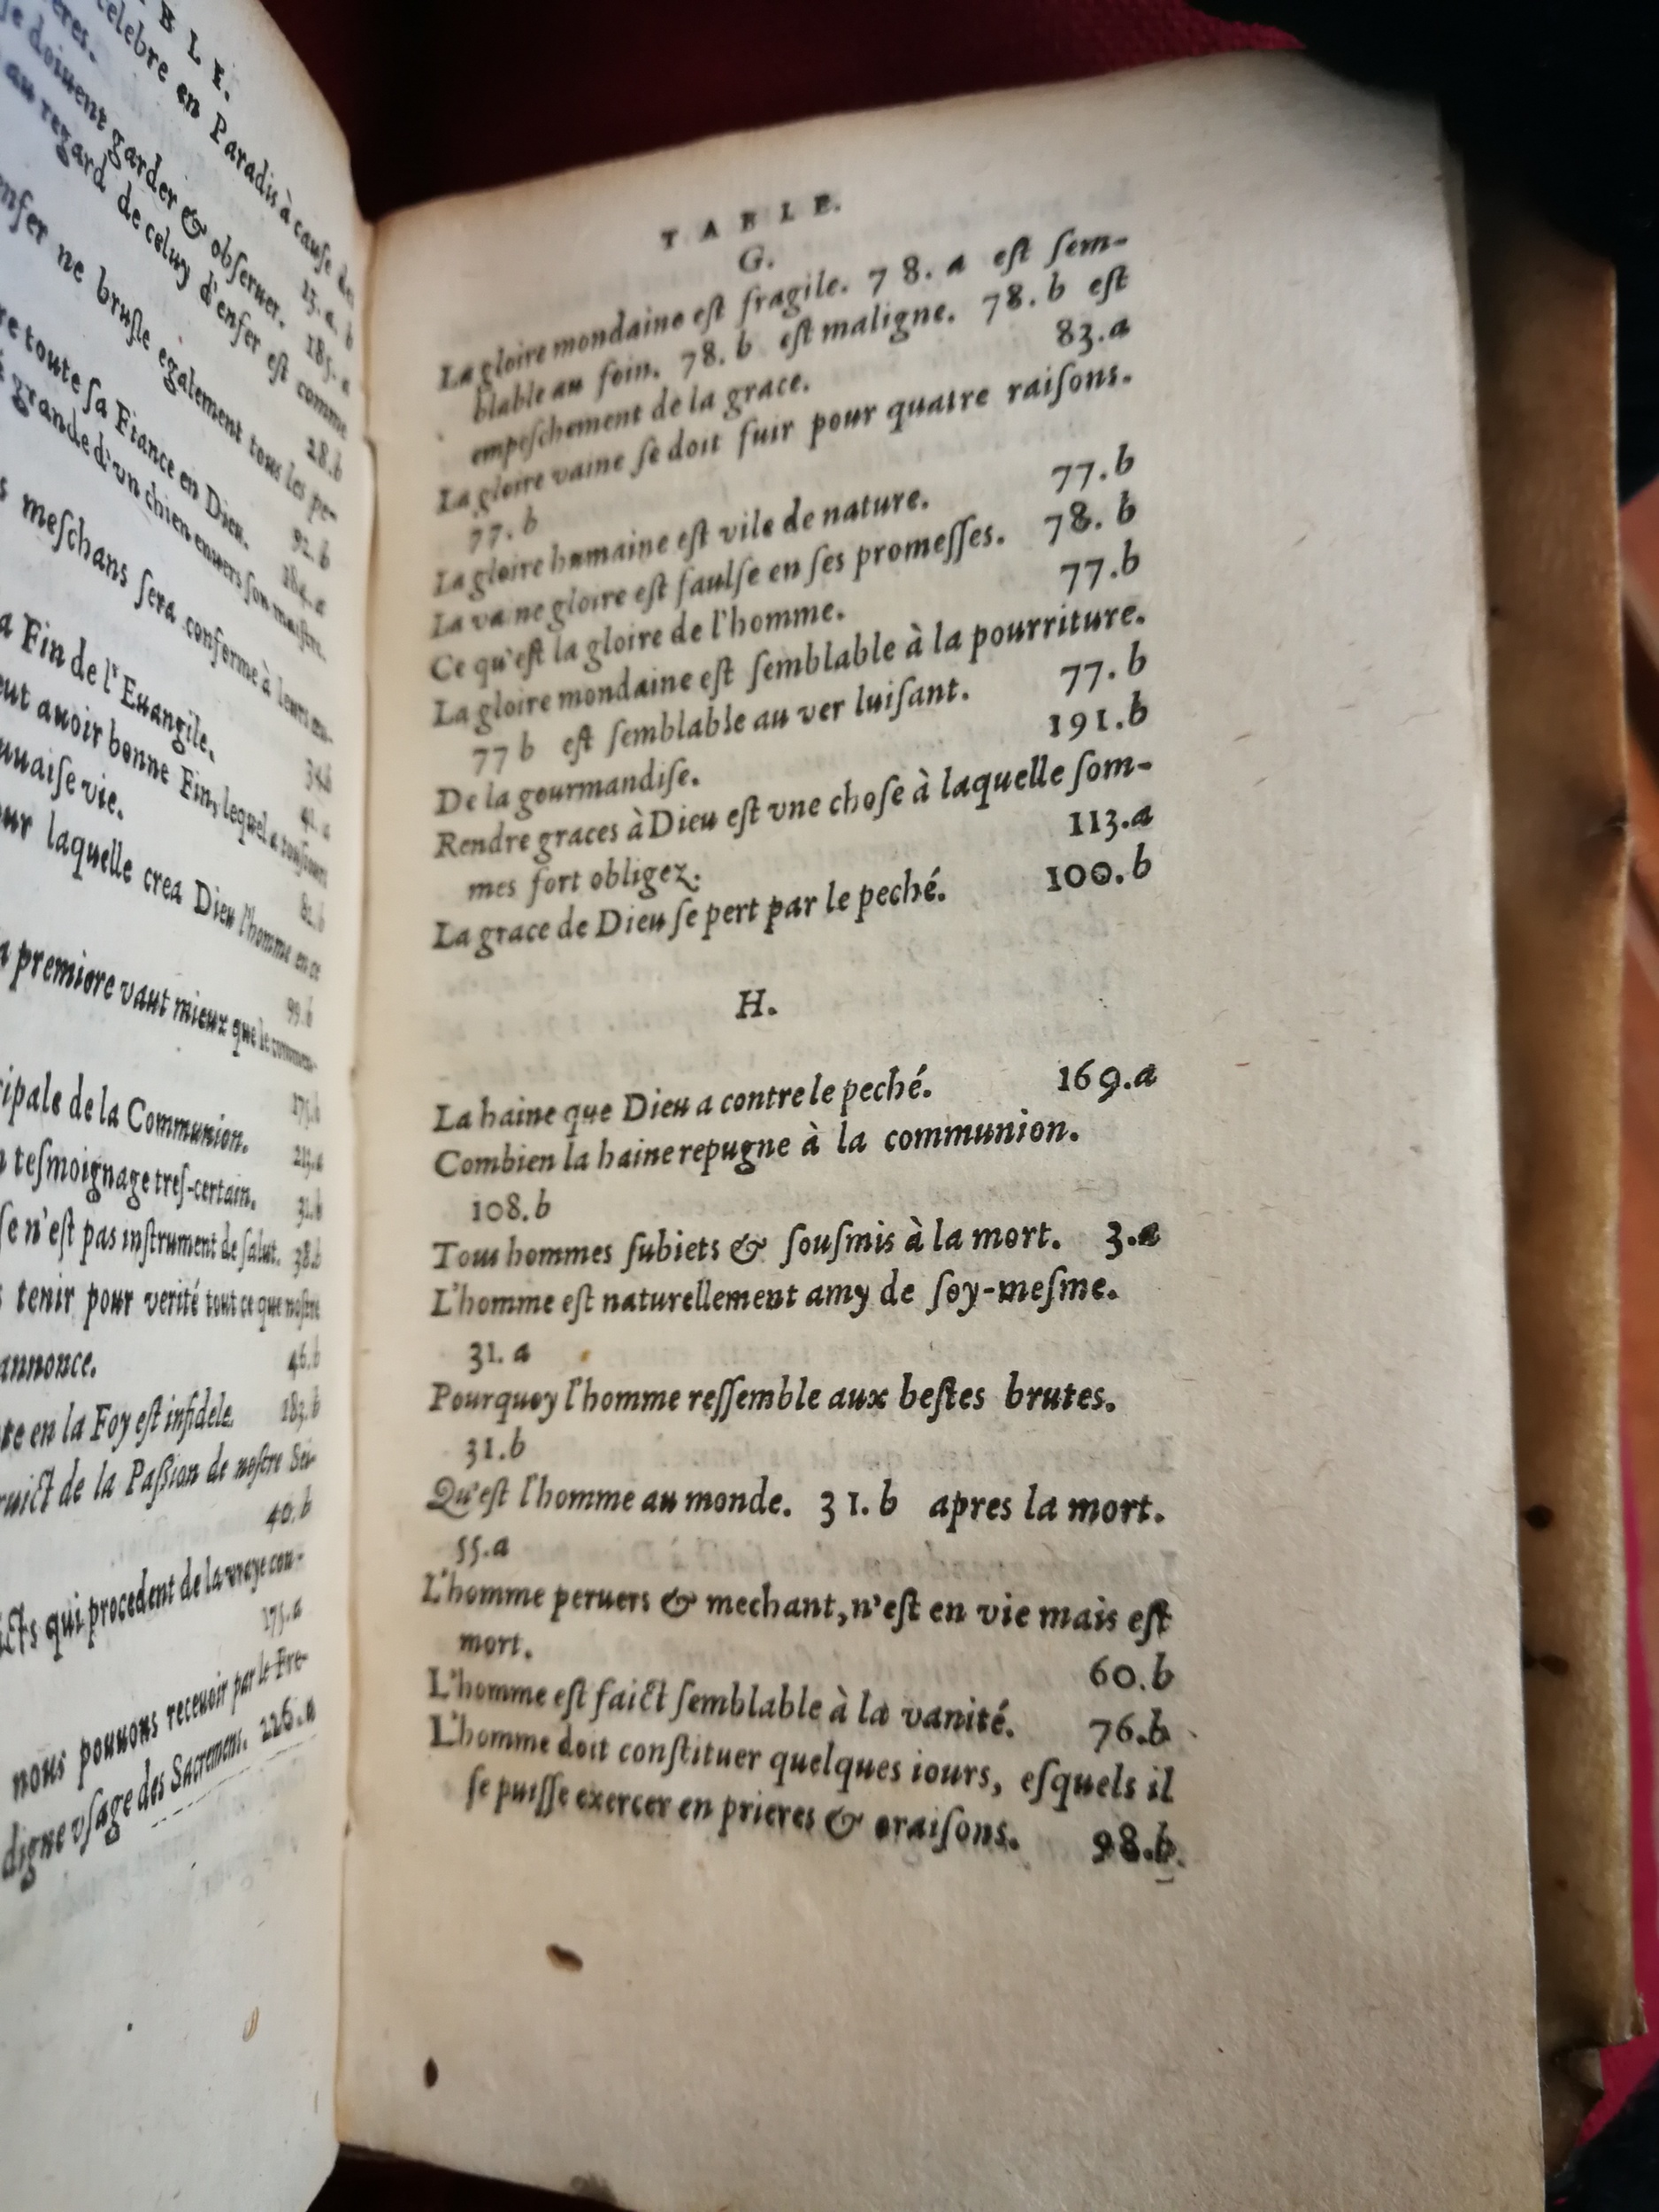 B L E.
celebre en Paradis à cauſe de
15. a. b
ſe doiuent garder & obſeruer. 185. a
au regard de celuy d'enfer eſt comme
28.b
ne bruſle egalement tous les pe-
92. b
toute ſa Fiance en Dieu. 184. a
grande d'vn chien enuers ſon maiſtre.
meſchans ſera conforme à leurs
a Fin de l'Euangile.
auoir bonne Fin, lequel a touſiours
82.b
vie.
laquelle crea Dieu l'homme en ce
99.b
premiere vaut mieux que le commen-
de la Communion.
teſmoignage treſ-certain. 31.b
ſe n'eſt pas inſtrument de ſalut. 38.b
tenir pour verité tout ce que noſtre
annonce. 46.b
en la Foy eſt infidele. 183.b
de la Paſſion de noſtre Sei-
40.b
qui procedent de la vraye con-
175.a
nous pouuons receuoir par le Fre-
digne vſage des Sacremens. 226.a
T A B L E.
G.
La gloire mondaine eſt fragile. 78. a eſt ſem-
blable au foin. 78. b eſt maligne. 78. b eſt
empeſchement de la grace. 83.a
La gloire vaine ſe doit fuir pour quatre raiſons.
77. b
La gloire humaine eſt vile de nature. 77.b
La vaine gloire eſt faulſe en ſes promeſſes. 78. b
Ce qu'eſt la gloire de l'homme. 77.b
La gloire mondaine eſt ſemblable à la pourriture.
77 b eſt ſemblable au ver luiſant. 77. b
De la gourmandiſe. 191.b
Rendre graces à Dieu eſt vne choſe à laquelle ſom-
mes fort obligez. 113.a
La grace de Dieu ſe pert par le peché. 100.b
H.
La haine que Dieu a contre le peché. 169.a
Combien la haine repugne à la communion.
108.b
Tous hommes ſubiets & ſouſmis à la mort. 3.a
L'homme eſt naturellement amy de ſoy-meſme.
31. a
Pourquoy l'homme reſſemble aux beſtes brutes.
31.b
Qu'eſt l'homme au monde. 31. b apres la mort.
55.a
L'homme peruers & mechant, n'eſt en vie mais eſt
mort. 60.b
L'homme eſt faict ſemblable à la vanité. 76.b
L'homme doit conſtituer quelques iours, eſquels il
ſe puiſſe exercer en prieres & oraiſons. 98.b.